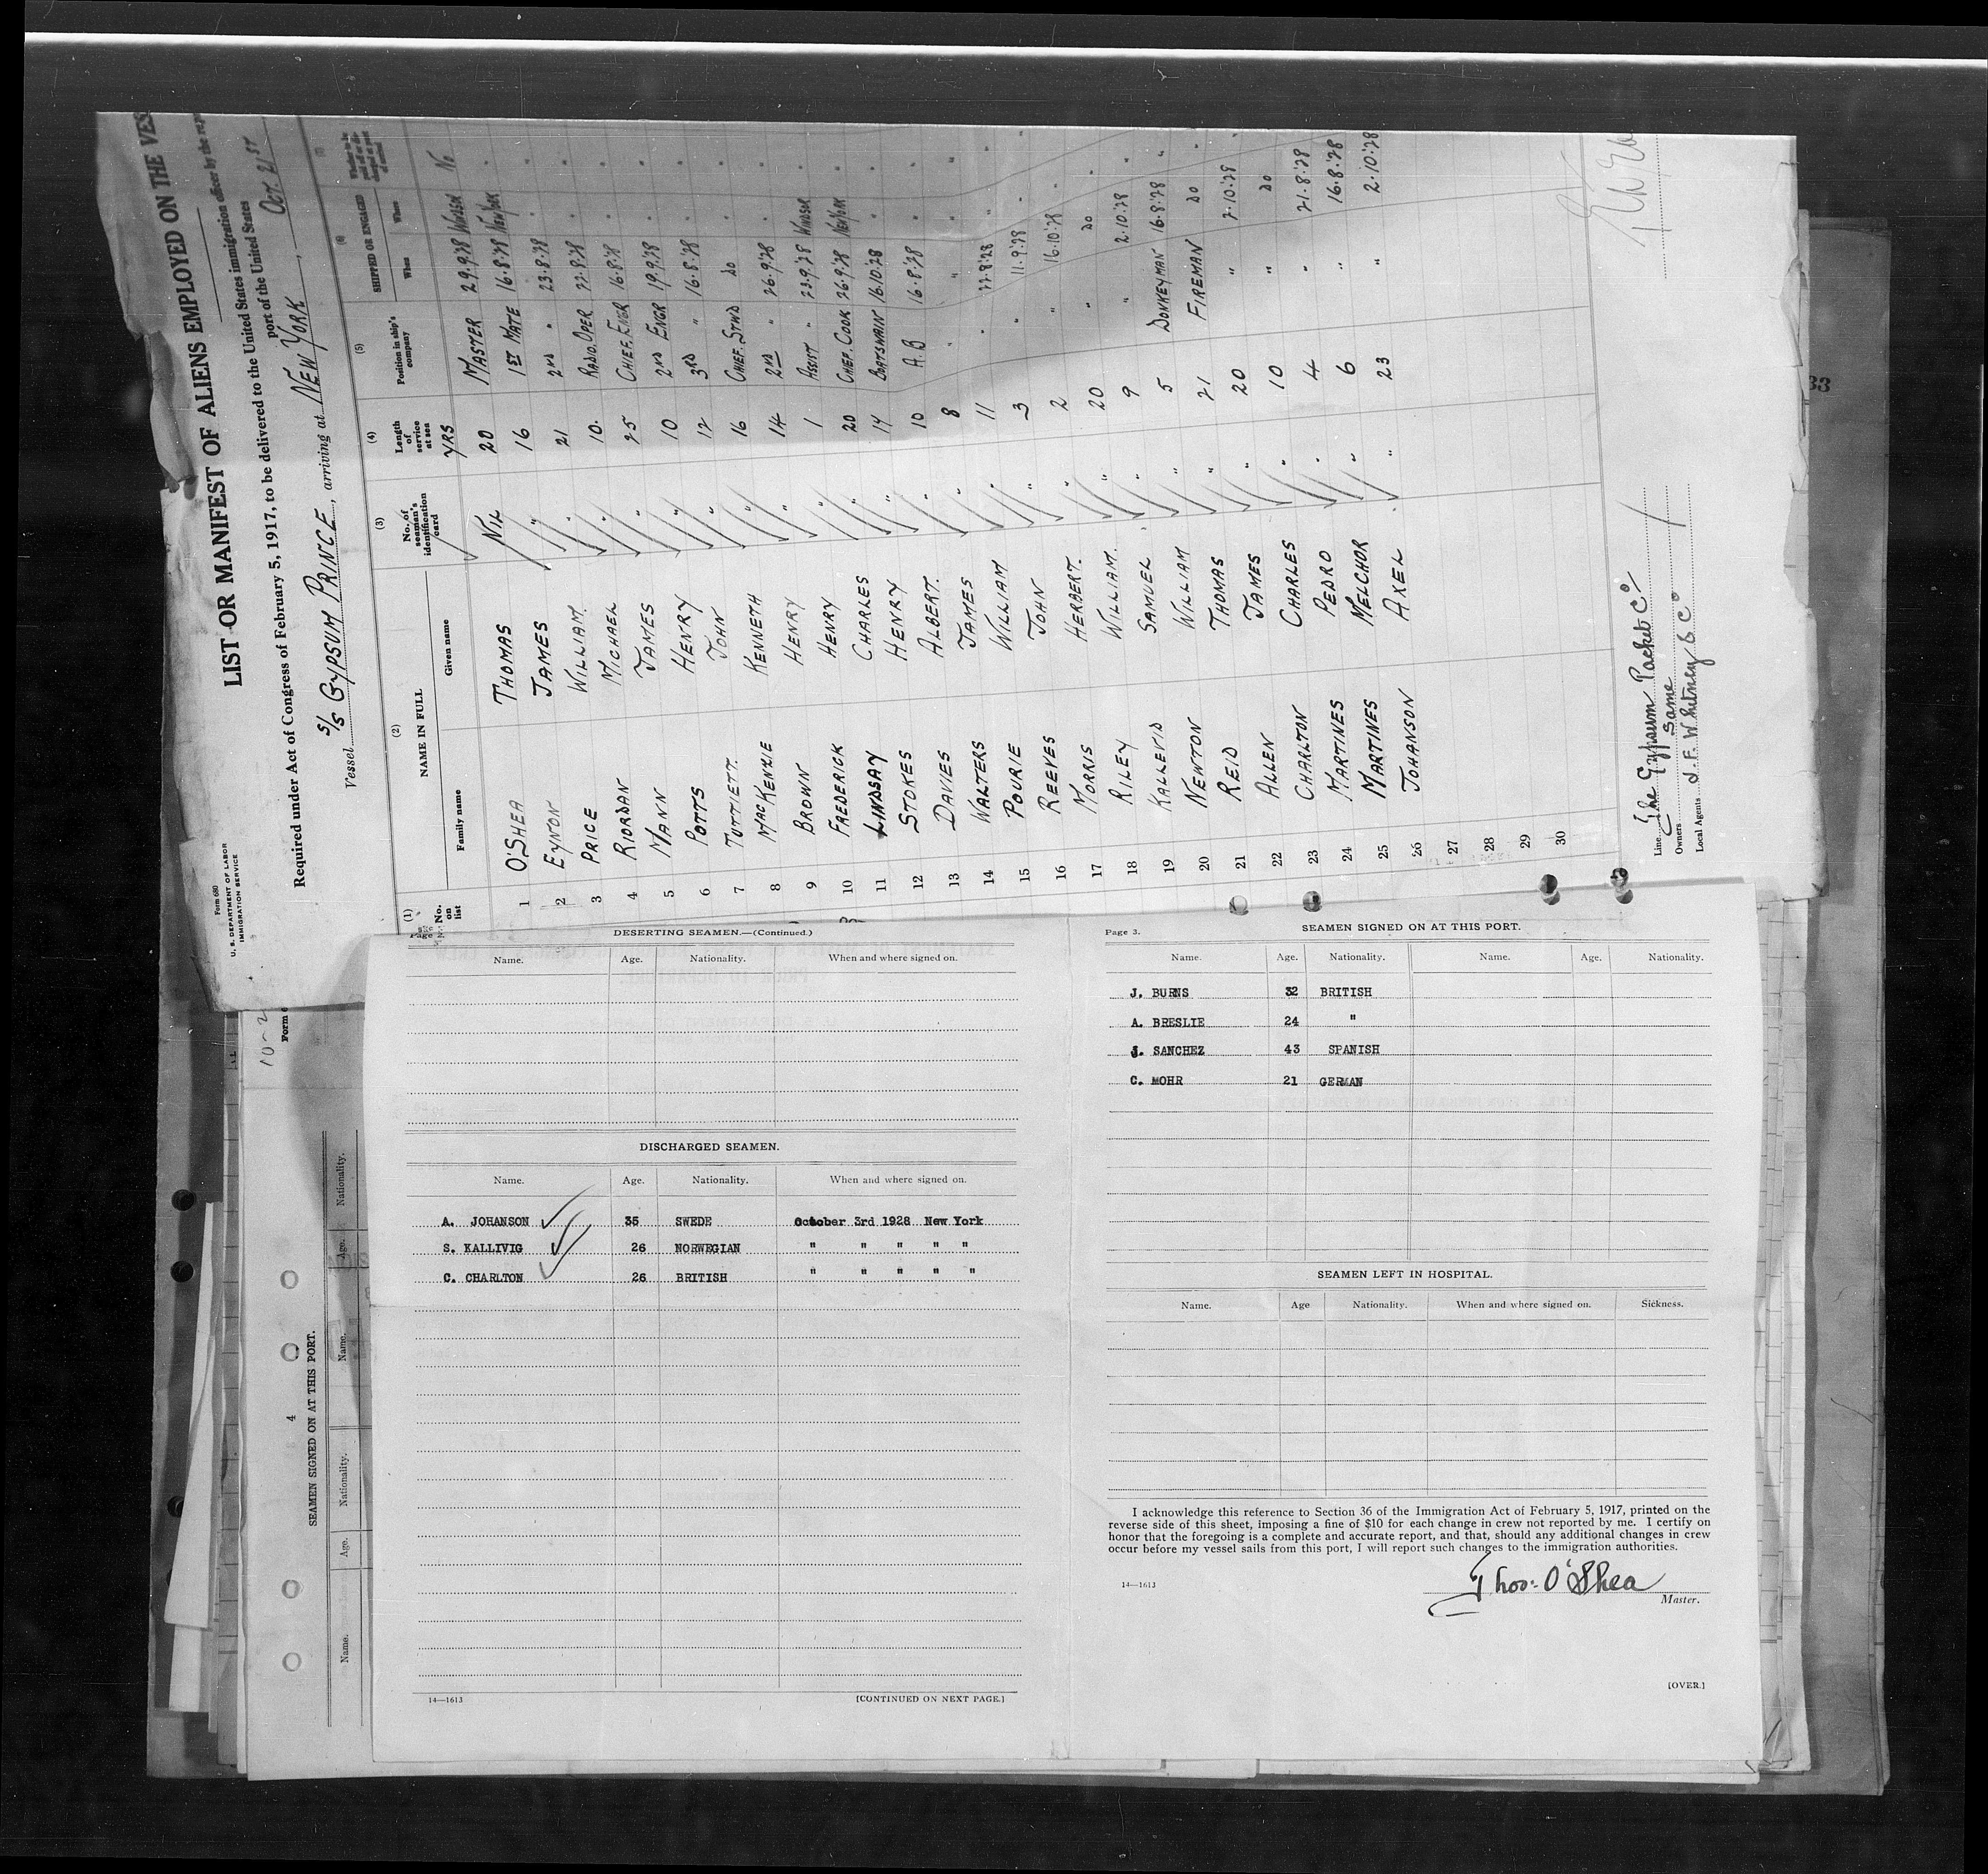 Form 680
U. S. DEPARTMENT OF LABOR
IMMIGRATION SERVICE
LIST OR MANIFEST OF ALIENS EMPLOYED ON THE VES
Required under Act of Congress of February 5, 1917, to be delivered to the United States immigration officer by the
port of the United States
Vessel S/S GYPSUM PRINCE, arriving at NEW YORK, OCT. 21ST
(1) (2) (3) (4) (5) (6)
No. on list NAME IN FULL No. of seaman's identification card Length of service at sea Position in ship's company SHIPPED OR ENGAGED
Family name Given name YRS When Where
1 O'SHEA THOMAS NIL 20 MASTER 29.9.28 WINDSOR No
2 EYNON JAMES " 16 1ST MATE 16.8.28 NEW YORK "
3 PRICE WILLIAM. " 21 2ND " 23.8.28 " "
4 RIORDAN MICHAEL " 10. RADIO.OPER 22.8.28 " "
5 MANN JAMES " 25 CHIEF.ENGR 16.8.28 " "
6 POTTS HENRY " 10 2ND ENGR 19.9.28 " "
7 TUTTIETT. JOHN " 12 3RD " 16.8.28 " "
8 MACKENZIE KENNETH " 16 CHIEF.STWD DO " "
9 BROWN HENRY " 14 2ND " 26.9.28 " "
10 FREDERICK HENRY " 1 ASSIST " 23.9.28 WINDSOR "
11 LINDSAY CHARLES " 20 CHIEF.COOK 26.9.28 NEW YORK "
12 STOKES HENRY " 14 BOATSWAIN 16.10.28 " "
13 DAVIES ALBERT. " 10 A.B 16.8.28 " "
14 WALTERS JAMES " 8 " " "
15 POURIE WILLIAM " 11 " 22.8.28 " "
16 REEVES JOHN " 3 " 11.9.28 "
17 MORRIS HERBERT. " 2 " 16.10.28 "
18 RILEY WILLIAM. " 20 " DO "
19 KALLEVID SAMUEL " 9 " 2.10.28 "
20 NEWTON WILLIAM " 5 DONKEYMAN 16.8.28 "
21 REID THOMAS " 21 FIREMAN DO "
22 ALLEN JAMES " 20 " 2.10.28 "
23 CHARLTON CHARLES " 10 " DO
24 MARTINES PEDRO " 4 " 21.8.28
25 MARTINES MELCHOR " 6 " 16.8.28
26 JOHANSON AXEL " 23 " 2.10.28
27
28
29
30
Line The Gypsum Packet Co
Owners Same
Local Agents J. F. Whitney & Co
33
10-2
Form 6
4
SEAMEN SIGNED ON AT THIS PORT.
Name. Age. Nationality. Name. Age. Nationality.
DESERTING SEAMEN.—(Continued.)
Name. Age. Nationality. When and where signed on.
DISCHARGED SEAMEN.
Name. Age. Nationality. When and where signed on.
A. JOHANSON 35 SWEDE October 3rd 1928 New York
S. KALLIVIG 26 NORWEGIAN " " " " "
C. CHARLTON 26 BRITISH " " " " "
14—1613 [CONTINUED ON NEXT PAGE.]
Page 3. SEAMEN SIGNED ON AT THIS PORT.
Name. Age. Nationality. Name. Age. Nationality.
J. BURNS 32 BRITISH
A. BRESLIE 24 "
J. SANCHEZ 43 SPANISH
C. MOHR 21 GERMAN
SEAMEN LEFT IN HOSPITAL.
Name. Age Nationality. When and where signed on. Sickness.
I acknowledge this reference to Section 36 of the Immigration Act of February 5, 1917, printed on the
reverse side of this sheet, imposing a fine of $10 for each change in crew not reported by me. I certify on
honor that the foregoing is a complete and accurate report, and that, should any additional changes in crew
occur before my vessel sails from this port, I will report such changes to the immigration authorities.
Thos. O'Shea
14—1613 Master.
[OVER.]